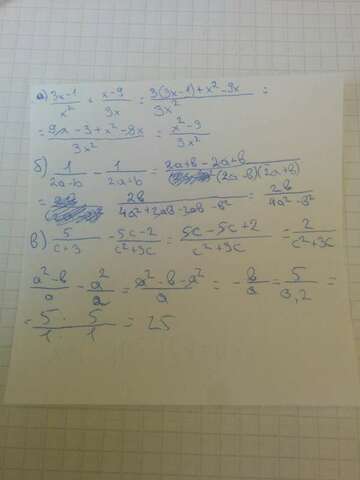 а) 3x-1/x² + x-9/3x = 3(3x-1)+x²-9x/3x² =
= 9x-3+x²-9x/3x² = x²-3/3x²
б) 1/2a-b - 1/2a+b = 2a+b-2a+b/(2a-b)(2a+b)
= 2b/4a²+2ab-2ab-b² = 2b/4a²-b²
в) 5/c+3 - 5c-2/c²+3c = 5c-5c+2/c²+3c = 2/c²+3c
a²-b/a - a²/a = a²-b-a²/a = -b/a = 5/0,2 =
= 5/1 · 5/1 = 25